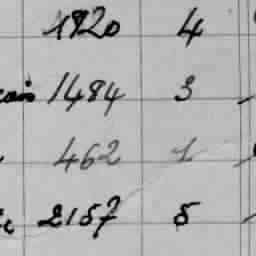 1920 4
1484 3
462 1
2157 5